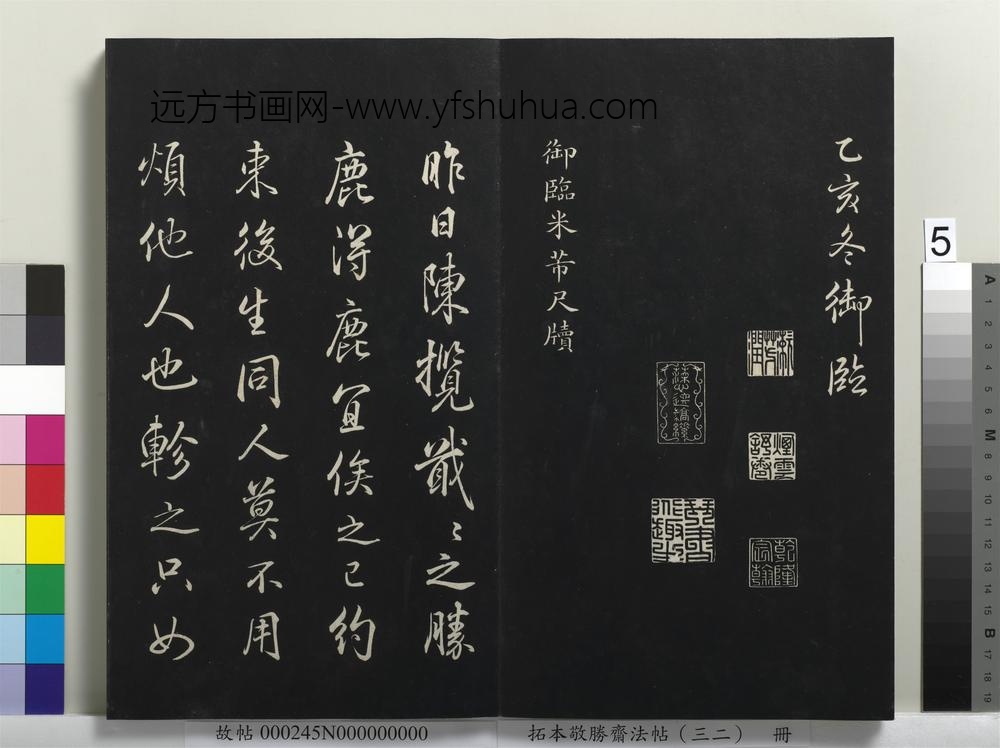 远方书画网-www.yfshuhua.com
乙亥冬御臨
煙雲舒卷
乾隆宸翰
御臨米芾尺牘
昨日陳攬戢〻之勝
鹿得鹿宜俟之已約
束後生同人莫不用
煩他人也軫之只如
故帖 000245N000000000
拓本敬勝齋法帖（三二） 冊
5
A 1 2 3 4 5 6 M 8 9 10 11 12 13 14 15 B 17 18 19